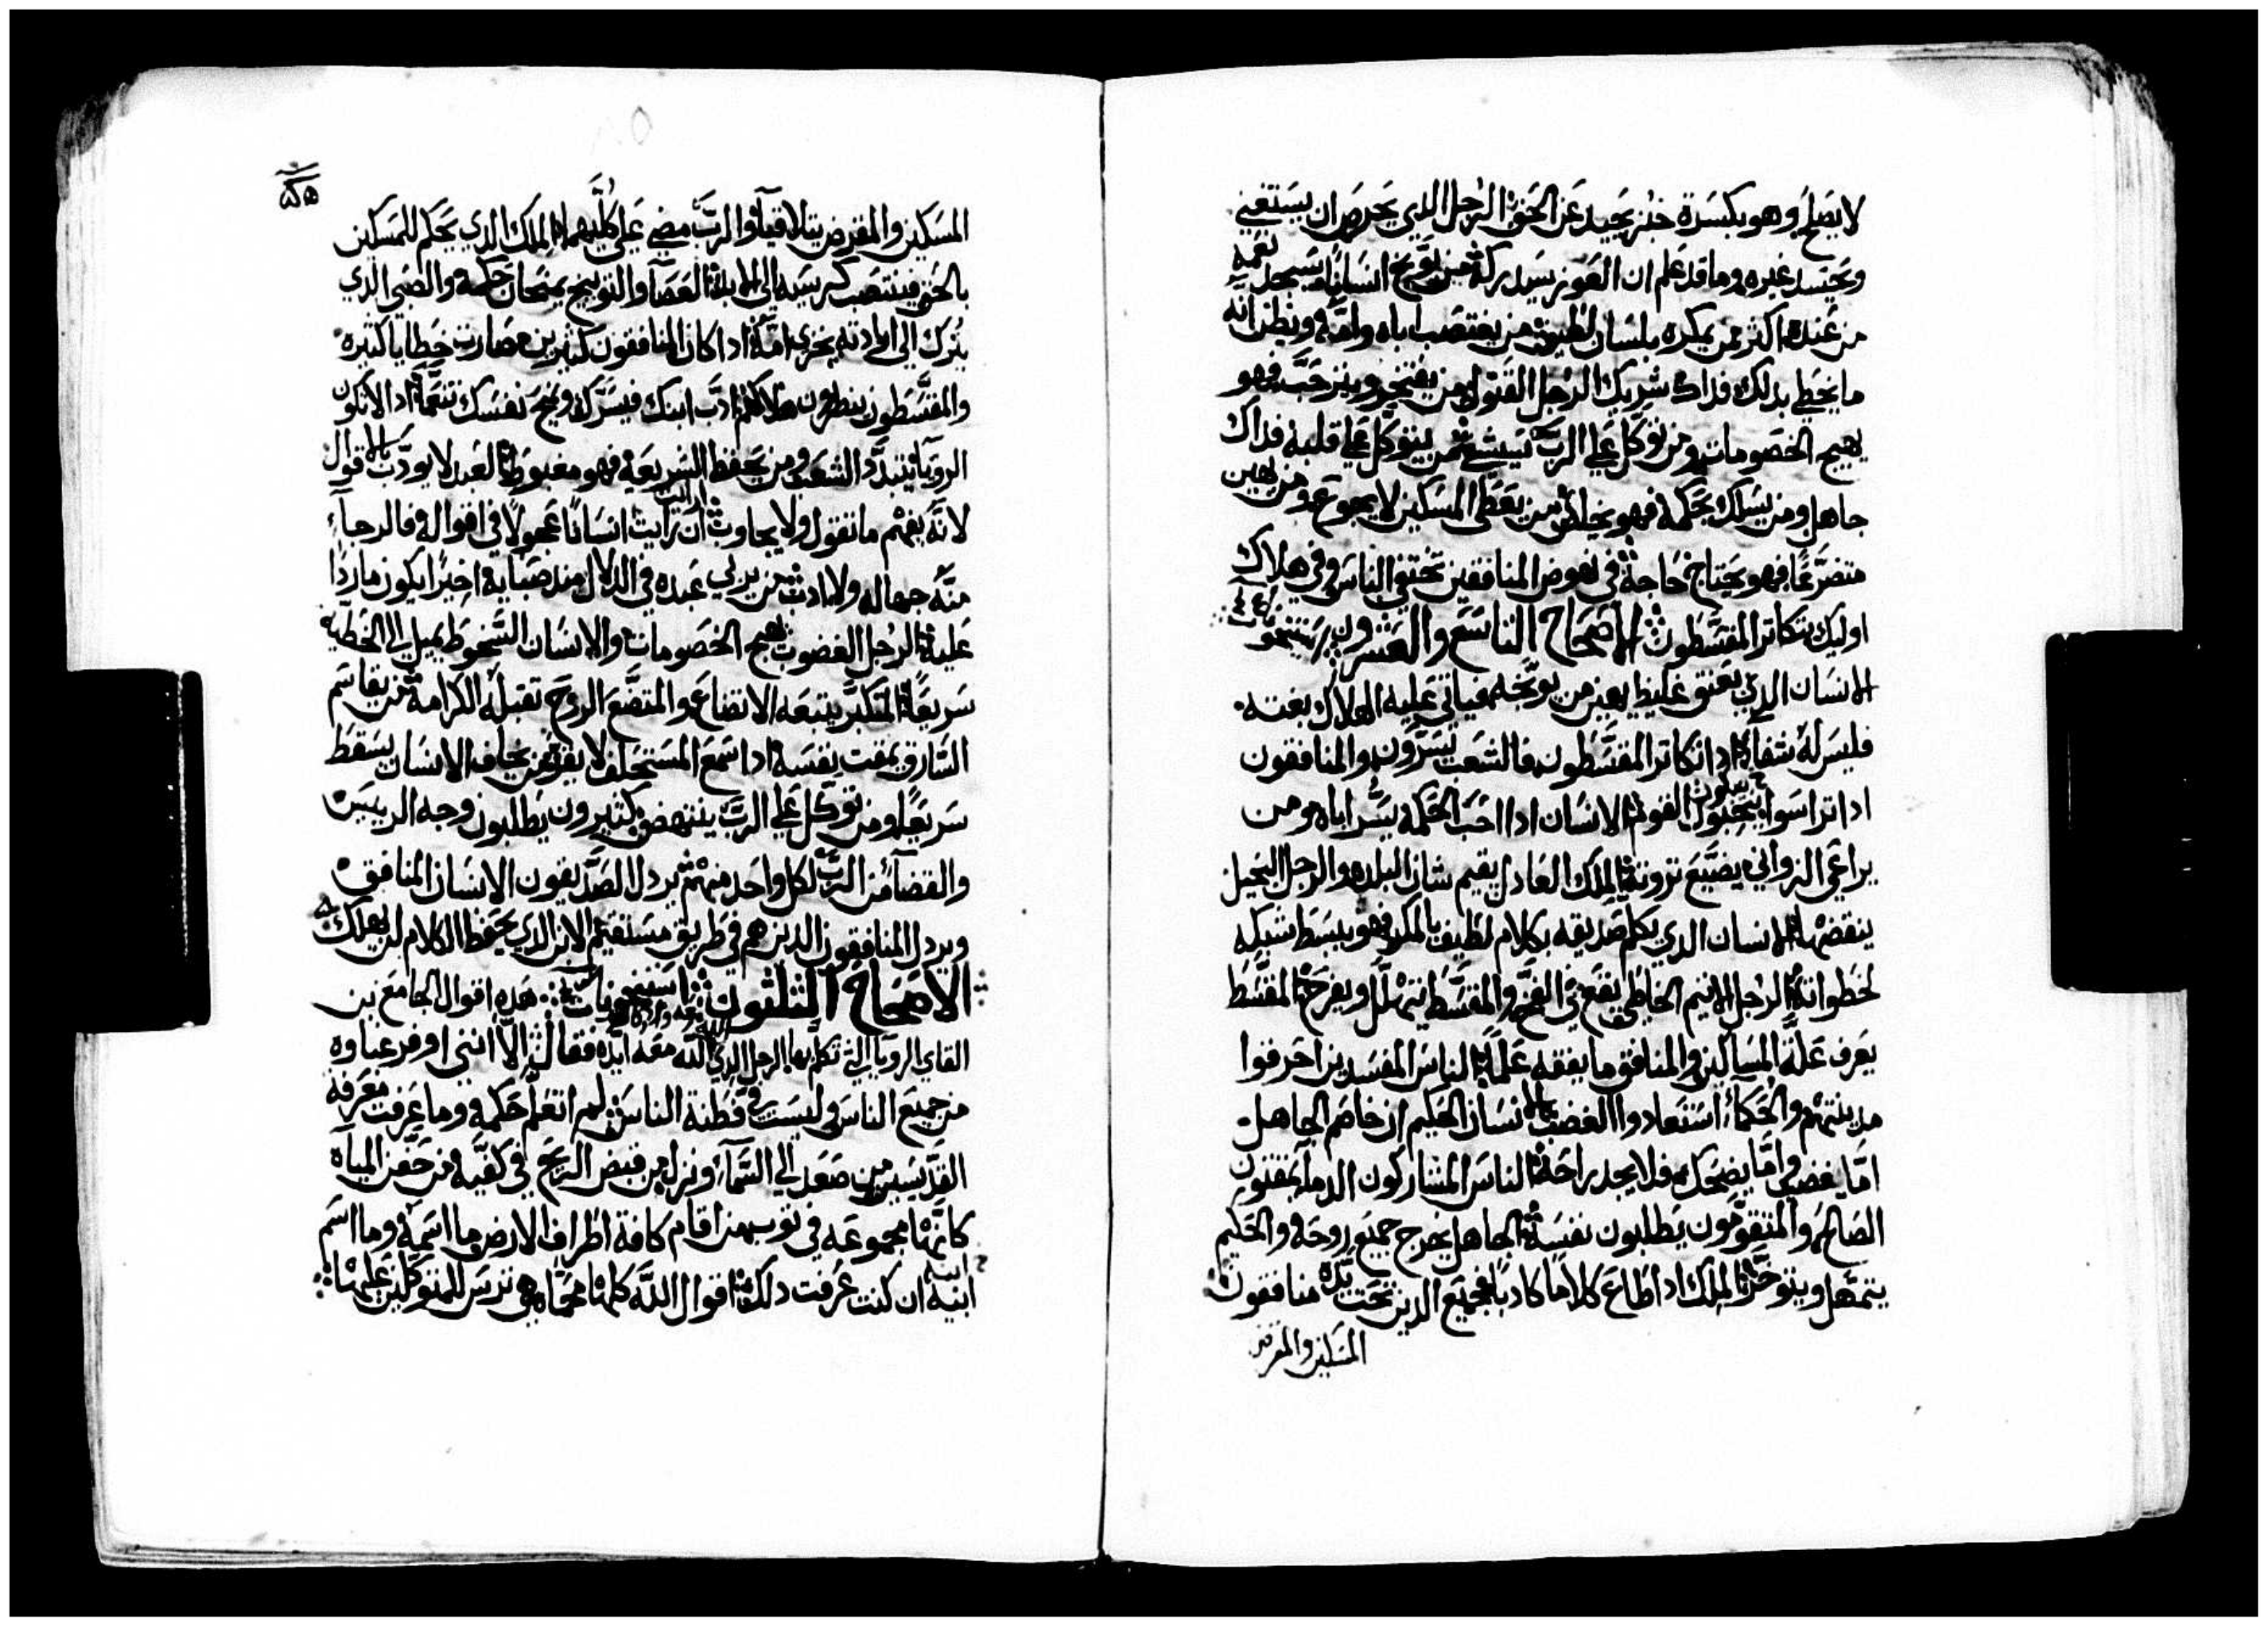 لا يصلح وهو بكسرة خبز يحيد عن الحق الرجل الدي يحرص ان يستغني
ويحسد غيره وما قد علم ان العوز سيدركه من يوبخ انسانا سيجد نعمه
من عنده اكثر ممن يمكره بلسان لطيف من يغتصب اباه وامه ويظن انه
ما يخطي بدلك فداك شريك الرجل القتول من يفتخر ويترحب فهو
يهيج الخصومات ومن توكل علي الرب سيشفي من يتوكل علي قلبه فداك
جاهل ومن يسلك بحكمة فهو يخلص من يعطي المسكين لا يجوع ومن يهين
متضرعا فهو يحتاج حاجة في نهوض المنافقين تختفي الناس وفي هلاك
اوليك يتكاتر المقسطون الاصحاح التاسع والعشرون
الانسان الدي بعنق غليظ يهين من يوبخه فياتي عليه الهلاك بغته
فليس له شفا ادا تكاتر المقسطون فالشعب يسرون والمنافقون
ادا تراسوا القوم الانسان ادا احب الحكمة يسر اباه ومن
يراعي الزواني يضيع تروته الملك العادل يقيم شان البلده والرجل البخيل
ينقضها الانسان الدي يكلم صديقه بكلام لطيف بالمكر فهو يبسط شبكه
لخطواته الرجل الاتيم الخاطي يقع في الفخ والمقسط يتهلل ويفرح المقسط
يعرف علة المساكين والمنافق ما يفقه علما الناس المفسدين احرفوا
مدينتهم والحكماء استعادوا الغضب الانسان الحكيم ان خاصم الجاهل
اما يغضب واما يضحك فلا يجد راحة الناس المشاركون الدما يمقتون
الصالح والمتقومون يطلبون نفسه الجاهل يخرج جميع روحه والحكيم
يتمهل ويتوخر الملك ادا اطاع كلاما كادبا فجميع الدين تحت يده منافقون
المسكين والمقرض
المسكين والمقرض يتلاقيا والرب مضي علي كليهما الملك الدي يحكم للمسكين
بالحق فينتصب كرسيه الي الابد العصا والتوبيخ يمنحان حكمة والصبي الدي
يترك الي ارادته يخزي امه ادا كان المنافقون كثيرين صارت خطايا كثيره
والمقسطون ينظرون هلاكهم ادب ابنك فيسرك ويمنح نفسك تنعما ادا لا تكون
الرويا يتبدد الشعب ومن يحفظ الشريعة فهو مغبوط العبد لا يودب بالاقوال
لانه يفهم ما تقول ولا يجاوب ان رايت انسانا عجولا في اقواله فالرجاء
منه جهاله ولا ادب من يربي عبده في الدلال مند صبايه اخيرا يكون ماردا
عليه الرجل الغضوب يهيج الخصومات والانسان السخوط يميل الي الخطية
سريعا المتكبر يتبعه الاتضاع والمتضع الروح تقبله الكرامة من يقاسم
السارق يمقت نفسه ادا سمع المستحلف لا يقر من يخاف الانسان يسقط
سريعا ومن توكل علي الرب ينتهض كثيرون يطلبون وجه الرييس
والقضا من الرب لكل واحد منهم يردل الصديقون الانسان المنافق
ويردل المنافقون الدين هم في طريق مستقيم الابن الدي يحفظ الكلام لن يهلك
الاصحاح التلتون هده اقوال الجامع بن
القاي الرويا التي تكلم بها الرجل الدي الله معه فقال الا انني اوفر غباوه
من جميع الناس وليست في فطنة الناس لم اتعلم حكمة وما عرفت معرفة
القديسين من صعد الي السماء ونزل من قبض الريح في كفيه من حقن المياه
كانها مجموعه في توب من اقام كافة اطراف الارض ما اسمه وما اسم
ابنه ان كنت عرفت دلك اقوال الله كلها محماه هي ترس للمتوكلين عليها